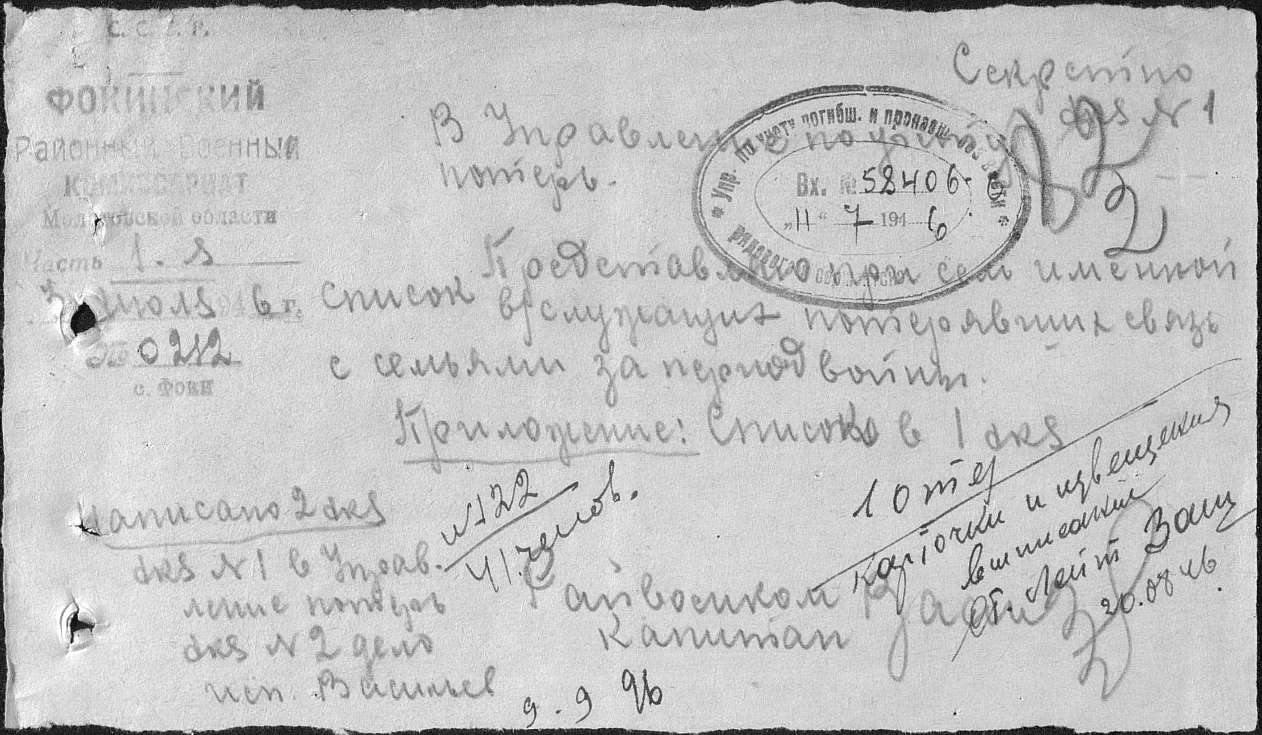 С.С.С.Р.
ФОКИНСКИЙ
Районный Военный
КОМИССАРИАТ
Молотовской области
Часть 1.
июля 1946 г.
№ 0212
с. Фоки
Секретно
экз N 1
В Управление по учету
потерь.
* Упр. по учету погибш. и пропавш. *
рядового
Вх. № 58406
„11“ 7 1946
Представляю при сем именной
список в/служащих потерявших связь
с семьями за период войны.
Приложение: Список в 1 экз
Написано 2 экз
экз N 1 в Управ-
ление потерь
экз N 2 дело
исп. Васильев
N122
41 челов.
Райвоенком
Капитан
10 отд
карточки и извещения
выписаны
Ст. Лейт
20.08.46.
9.9.46